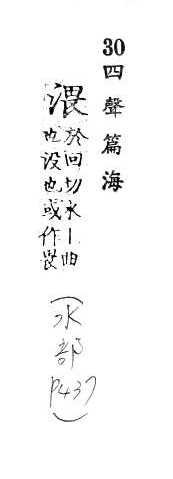 30 四聲篇海
渨
於回切水丨曲
也没也或作畏
(水部 P437)